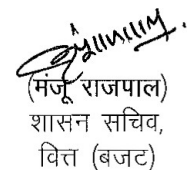 (मंजू राजपाल)
शासन सचिव,
वित्त (बजट)